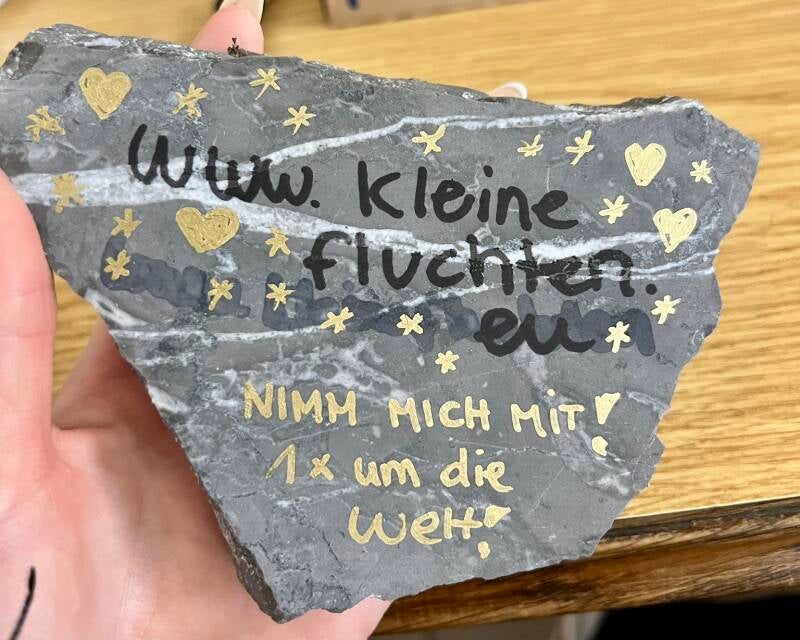 www. kleine
fluchten.
eu
NIMM MICH MIT!
1x um die
Welt!